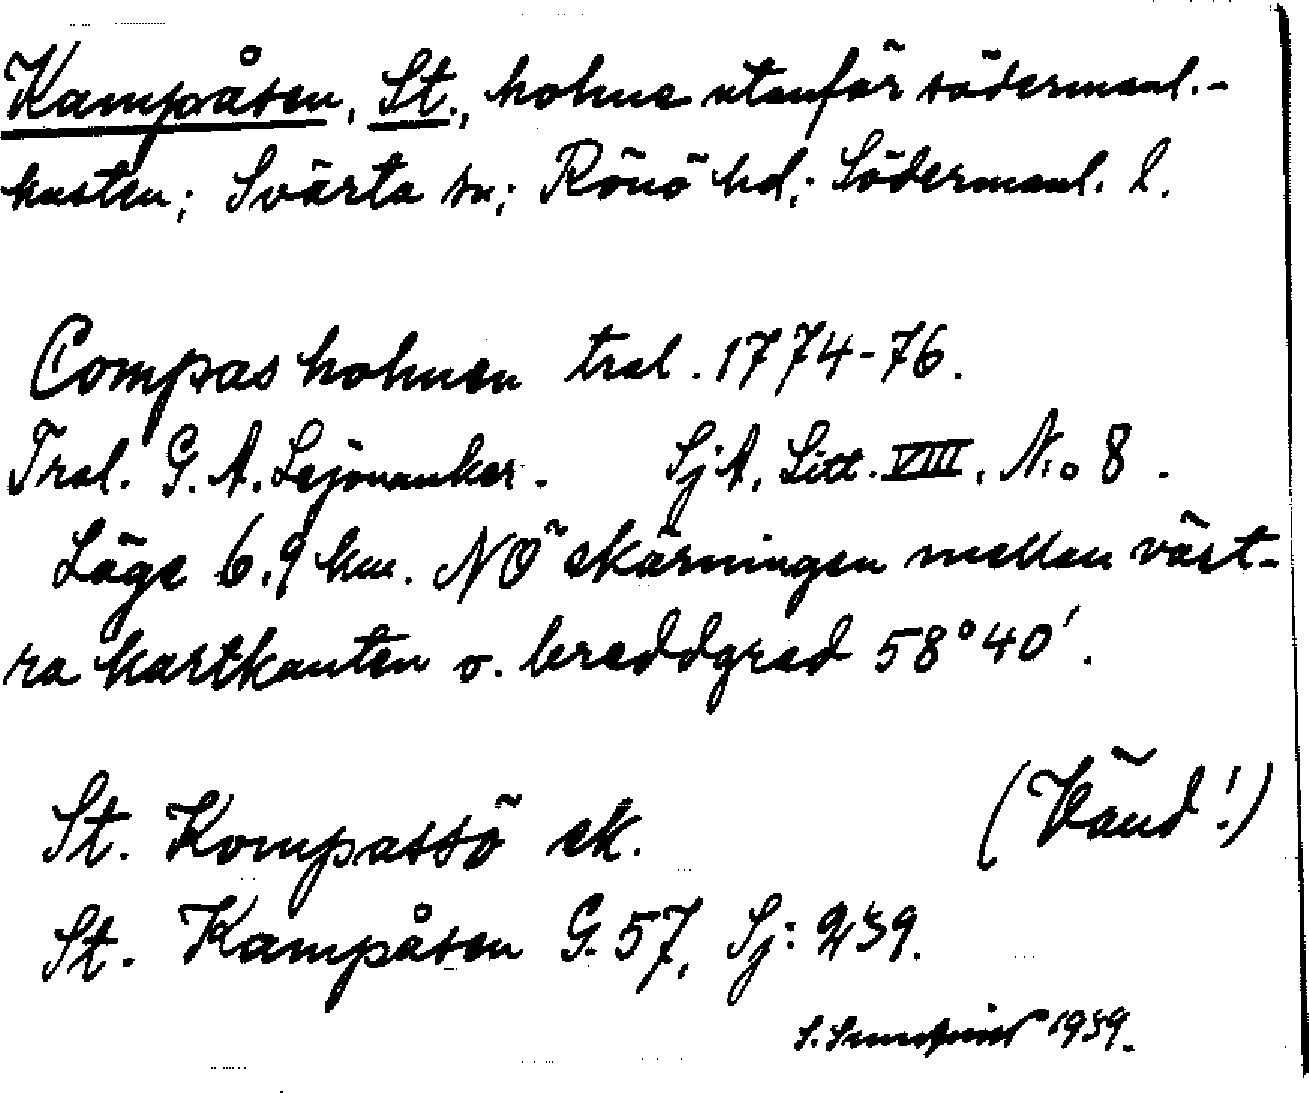 Kampåsen, St., holme utanför södermanl.-
kusten; Svärta sn; Rönö hd; Södermanl. l.
Compas holmen tral. 1774-76.
Tral. G. A. Lejonanker. SjA. Litt. VIII, N:o 8.
Läge 6,9 km. NÖ skärningen mellan väst-
ra kartkanten o. breddgrad 58°40'.
(Vänd!)
St. Kompassö ek.
St. Kampåsen G. 57, Sj: 239.
S. 1939.